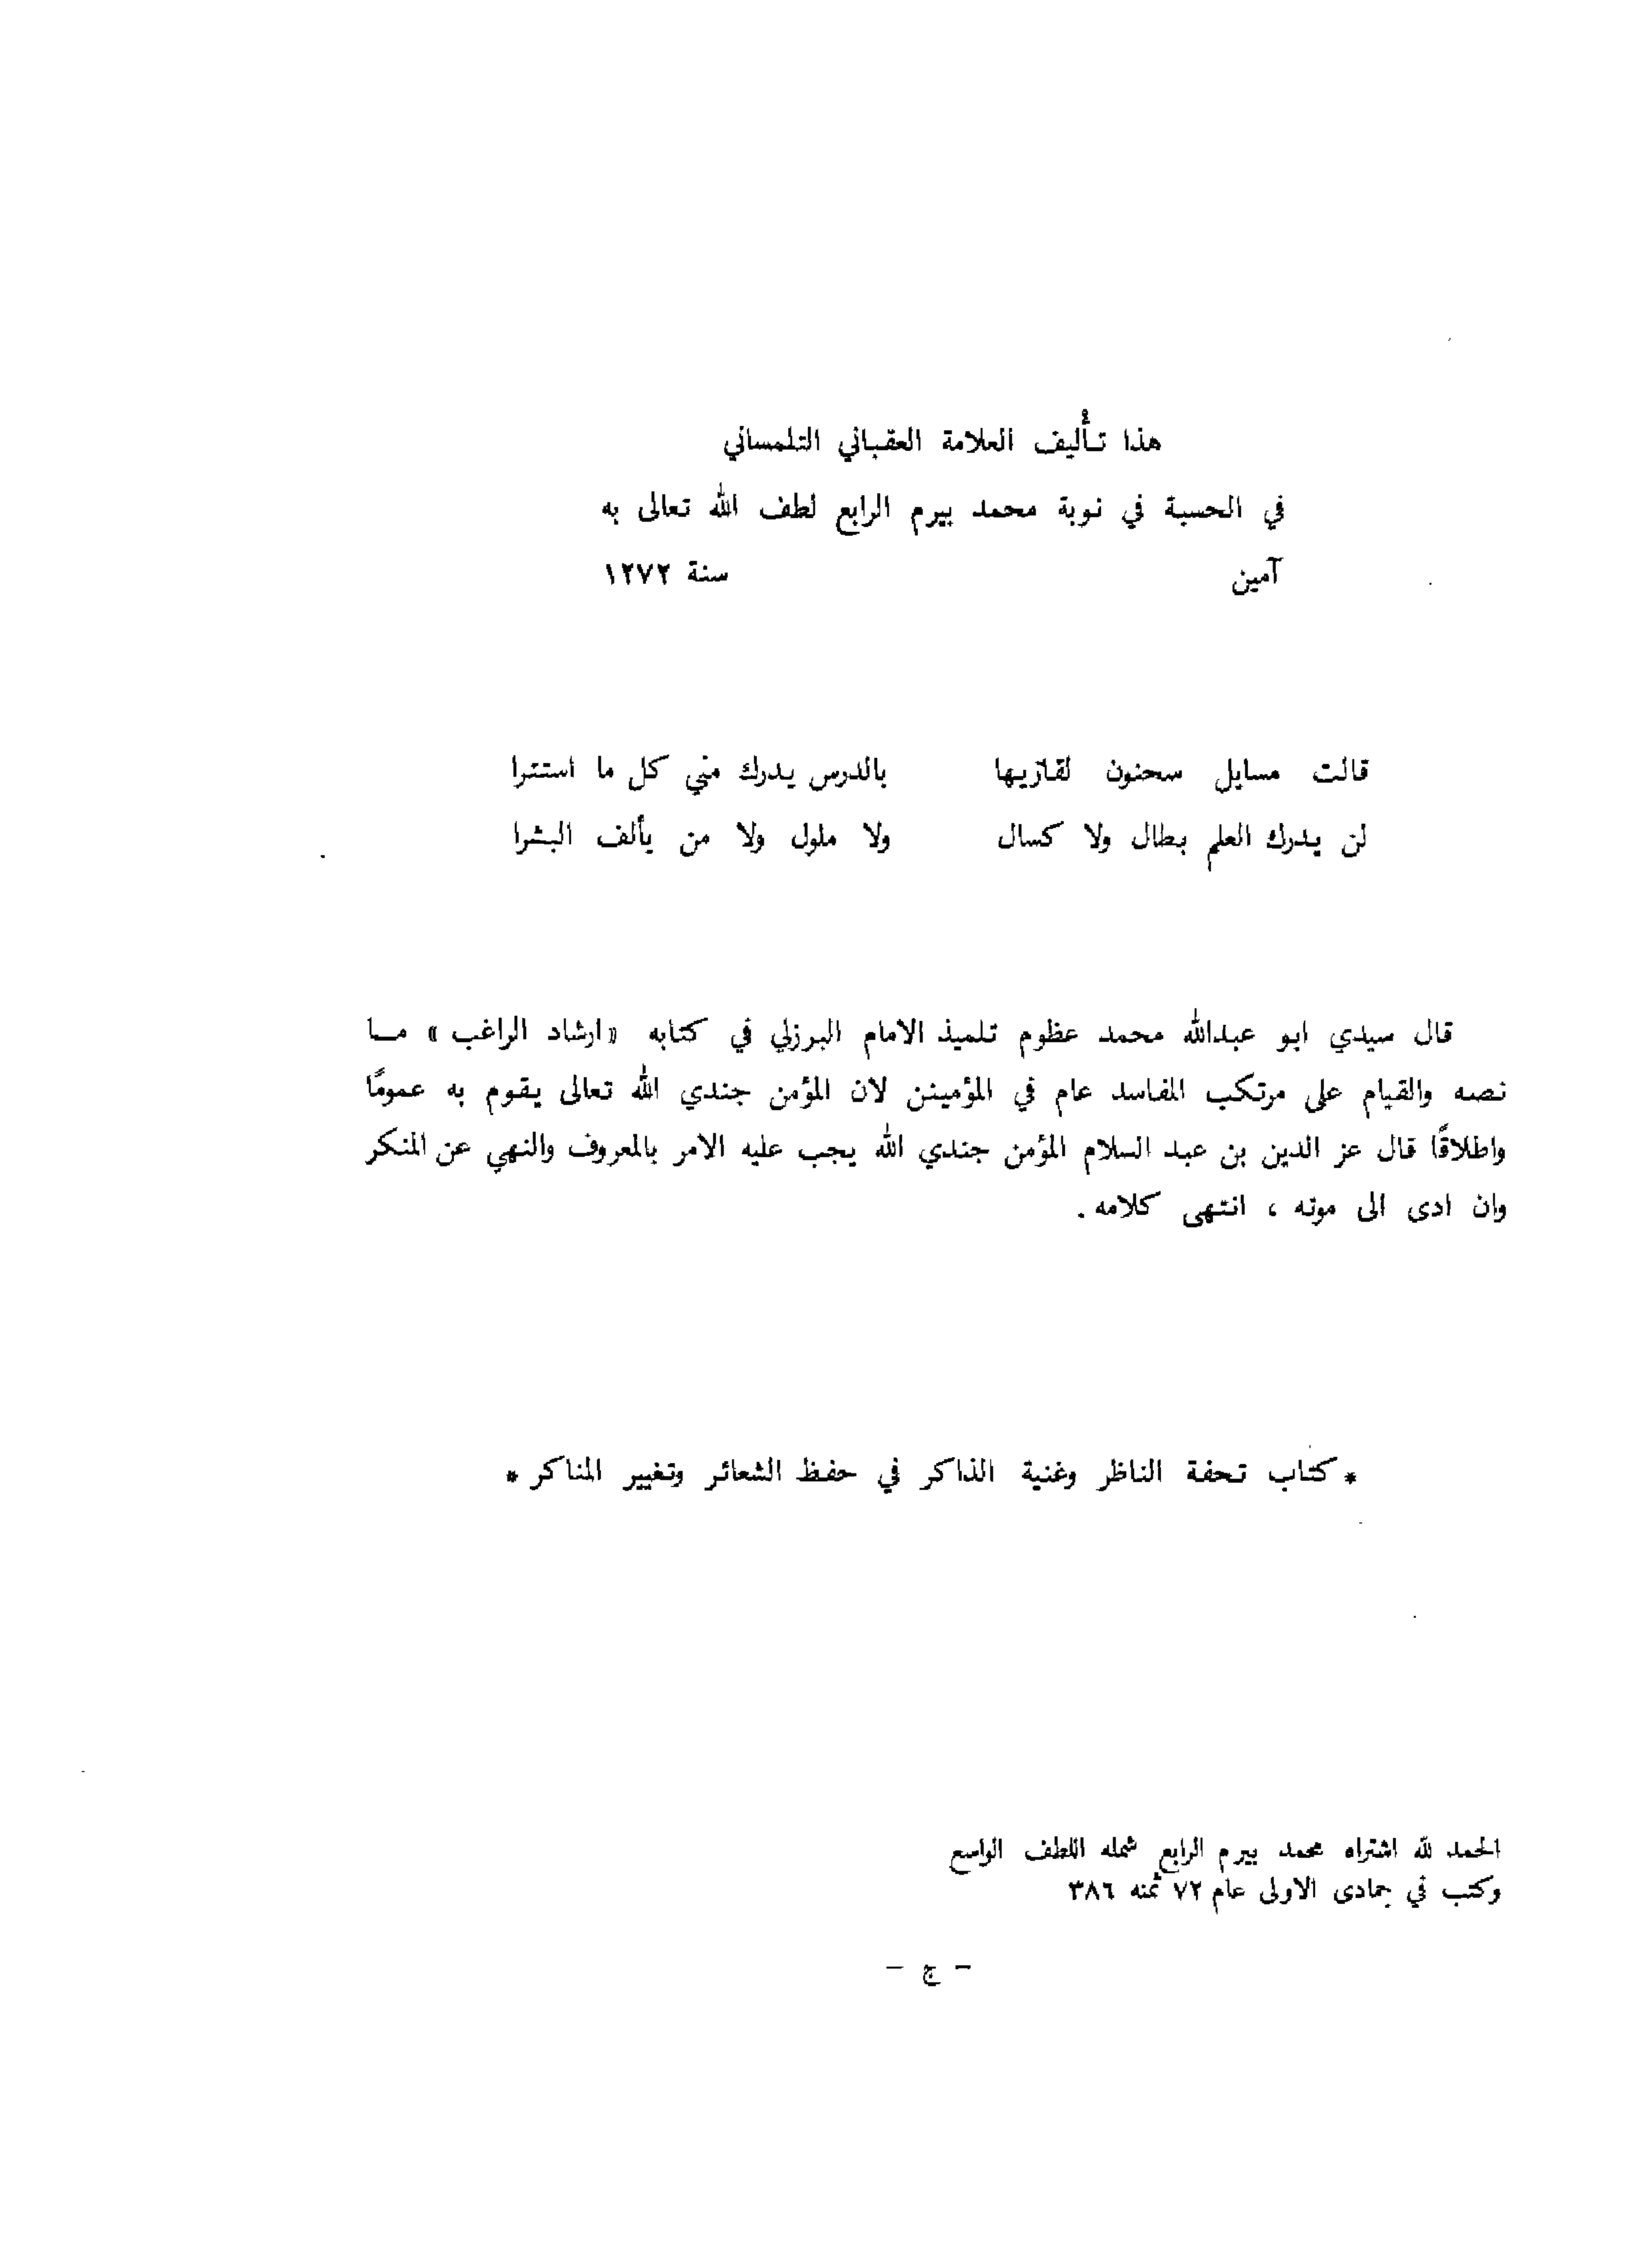 هذا تأليف العلامة العقباني التلمساني
في الحسبة في نوبة محمد بيرم الرابع لطف الله تعالى به
آمين سنة ١٢٧٢
قالت مسايل سحنون لقازيها بالدرس يدرك مني كل ما استترا
لن يدرك العلم بطال ولا كسال ولا ملول ولا من يألف البشرا
قال سيدي ابو عبدالله محمد عظوم تلميذ الامام البرزلي في كتابه «ارشاد الراغب» مـا
نصه والقيام على مرتكب المفاسد عام في المؤمينن لان المؤمن جندي الله تعالى يقوم به عمومًا
واطلاقًا قال عز الدين بن عبد السلام المؤمن جندي الله يجب عليه الامر بالمعروف والنهي عن المنكر
وان ادى الى موته ، انتهى كلامه .
* كتاب تحفة الناظر وغنية الذاكر في حفظ الشعائر وتغيير المناكر *
الحمد لله اشتراه محمد بيرم الرابع شمله اللطف الواسع
وكتب في جمادى الاولى عام ٧٢ ثمنه ٣٨٦
- ج -